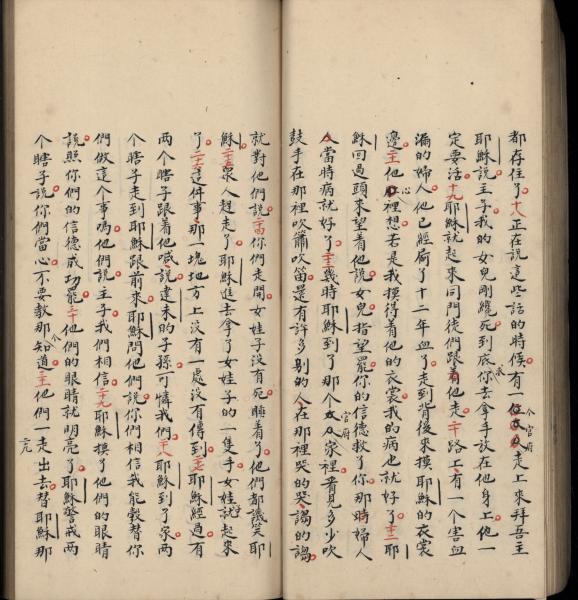 都存住了十八正在說這些話的時候有一个官府走上來拜吾主
耶穌說主子我的女兒剛纔死到底你去拿手放在他身上他一
定要活十九耶穌就起來同門徒們跟着他走二十路上有一个害血
漏的婦人他已經痾了十二年血了走到背後來摸耶穌的衣裳
邊二十一他心裡想若是我摸得着他的衣裳我的病也就好了二十二耶
穌回過頭來望着他說女兒指望罷你的信德救了你那時婦人
當時病就好了二十三幾時耶穌到了那个官府家裡看見多少吹
鼓手在那裡吹簫吹笛還有許多別的人在那裡哭的哭謅的謅
就對他們說二十四你們走開女娃子沒有死睡着了他們都譏笑耶
穌二十五衆人趕走了耶穌進去拿了女娃子的一隻手女娃就起來
了二十六這件事那一塊地方上沒有一處沒有傳到二十七耶穌經過有
两个瞎子跟着他喊說達未的子孫可憐我們二十八耶穌到了家两
个瞎子走到耶穌跟前來耶穌問他們說你們相信我能彀替你
們做這个事嗎他們說主子我們相信二十九耶穌摸了他們的眼睛
說照你們的信德成功罷三十他們的眼睛就明亮了耶穌警戒两
个瞎子說你們當心不要教那个知道三十一他們一走出去替耶穌那